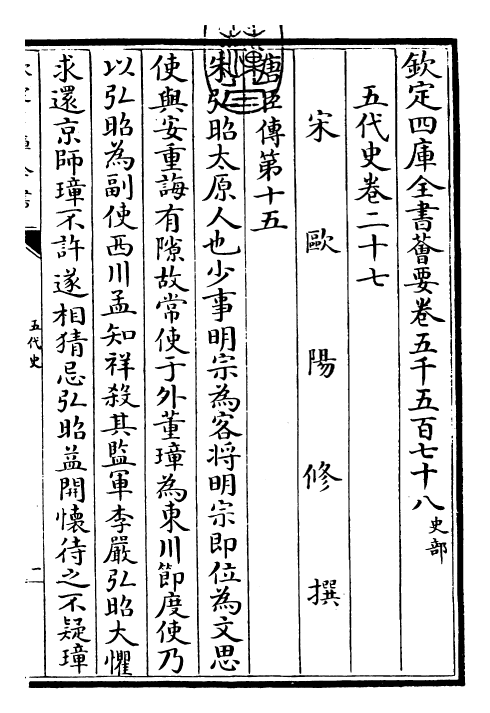 欽定四庫全書薈要卷五千五百七十八史部
五代史卷二十七
宋歐陽修撰
唐臣傳第十五
朱弘昭太原人也少事明宗為客將明宗即位為文思
使與安重誨有隙故常使于外董璋為東川節度使乃
以弘昭為副使西川孟知祥殺其監軍李嚴弘昭大懼
求還京師璋不許遂相猜忌弘昭益開懷待之不疑璋
五代史